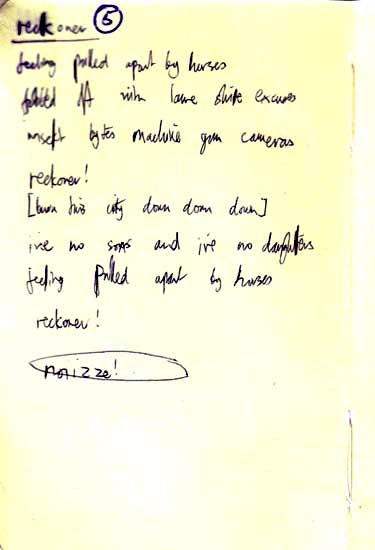 reckoner 5
feeling pulled apart by horses
fobbed off with lame shite excuses
insekt bytes machine gun cameras
reckoner!
[burn this city down down down]
ive no sons and ive no daughters
feeling pulled apart by horses
reckoner!
noizze!